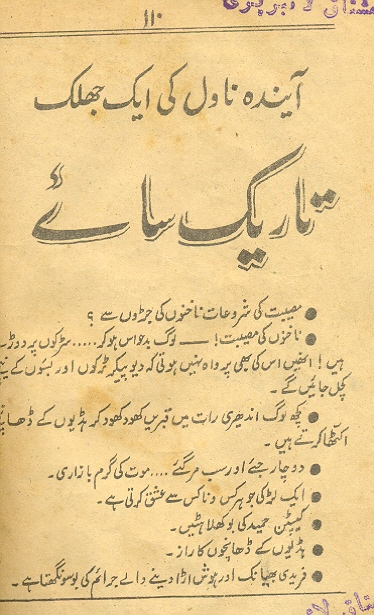 لائبریری
۱۱۰
آیندہ ناول کی ایک جھلک
تاریک سائے
● مصیبت کی شروعات ناخنوں کی جڑوں سے ؟
● ناخنوں کی مصیبت! — لوگ بدحواس ہو کر ..... سڑکوں پر دوڑتے
ہیں! انھیں اس کی بھی پرواہ نہیں ہوتی کہ دیو پیکر ٹرکوں اور بسوں کے نیچے
کچل جائیں گے۔
● کچھ لوگ اندھیری رات میں قبریں کھود کھود کر ہڈیوں کے ڈھانچے
اکٹھا کرتے ہیں۔
● دو چار جئے اور سب مر گئے .... موت کی گرم بازاری۔
● ایک لڑکی جو ہر کس و ناکس سے عشق کرتی ہے۔
● کیپٹن حمید کی بوکھلاہٹیں۔
● ہڈیوں کے ڈھانچوں کا راز۔
● فریدی بھیانک اور ہوش اڑا دینے والے جرائم کی بو سونگھتا ہے۔